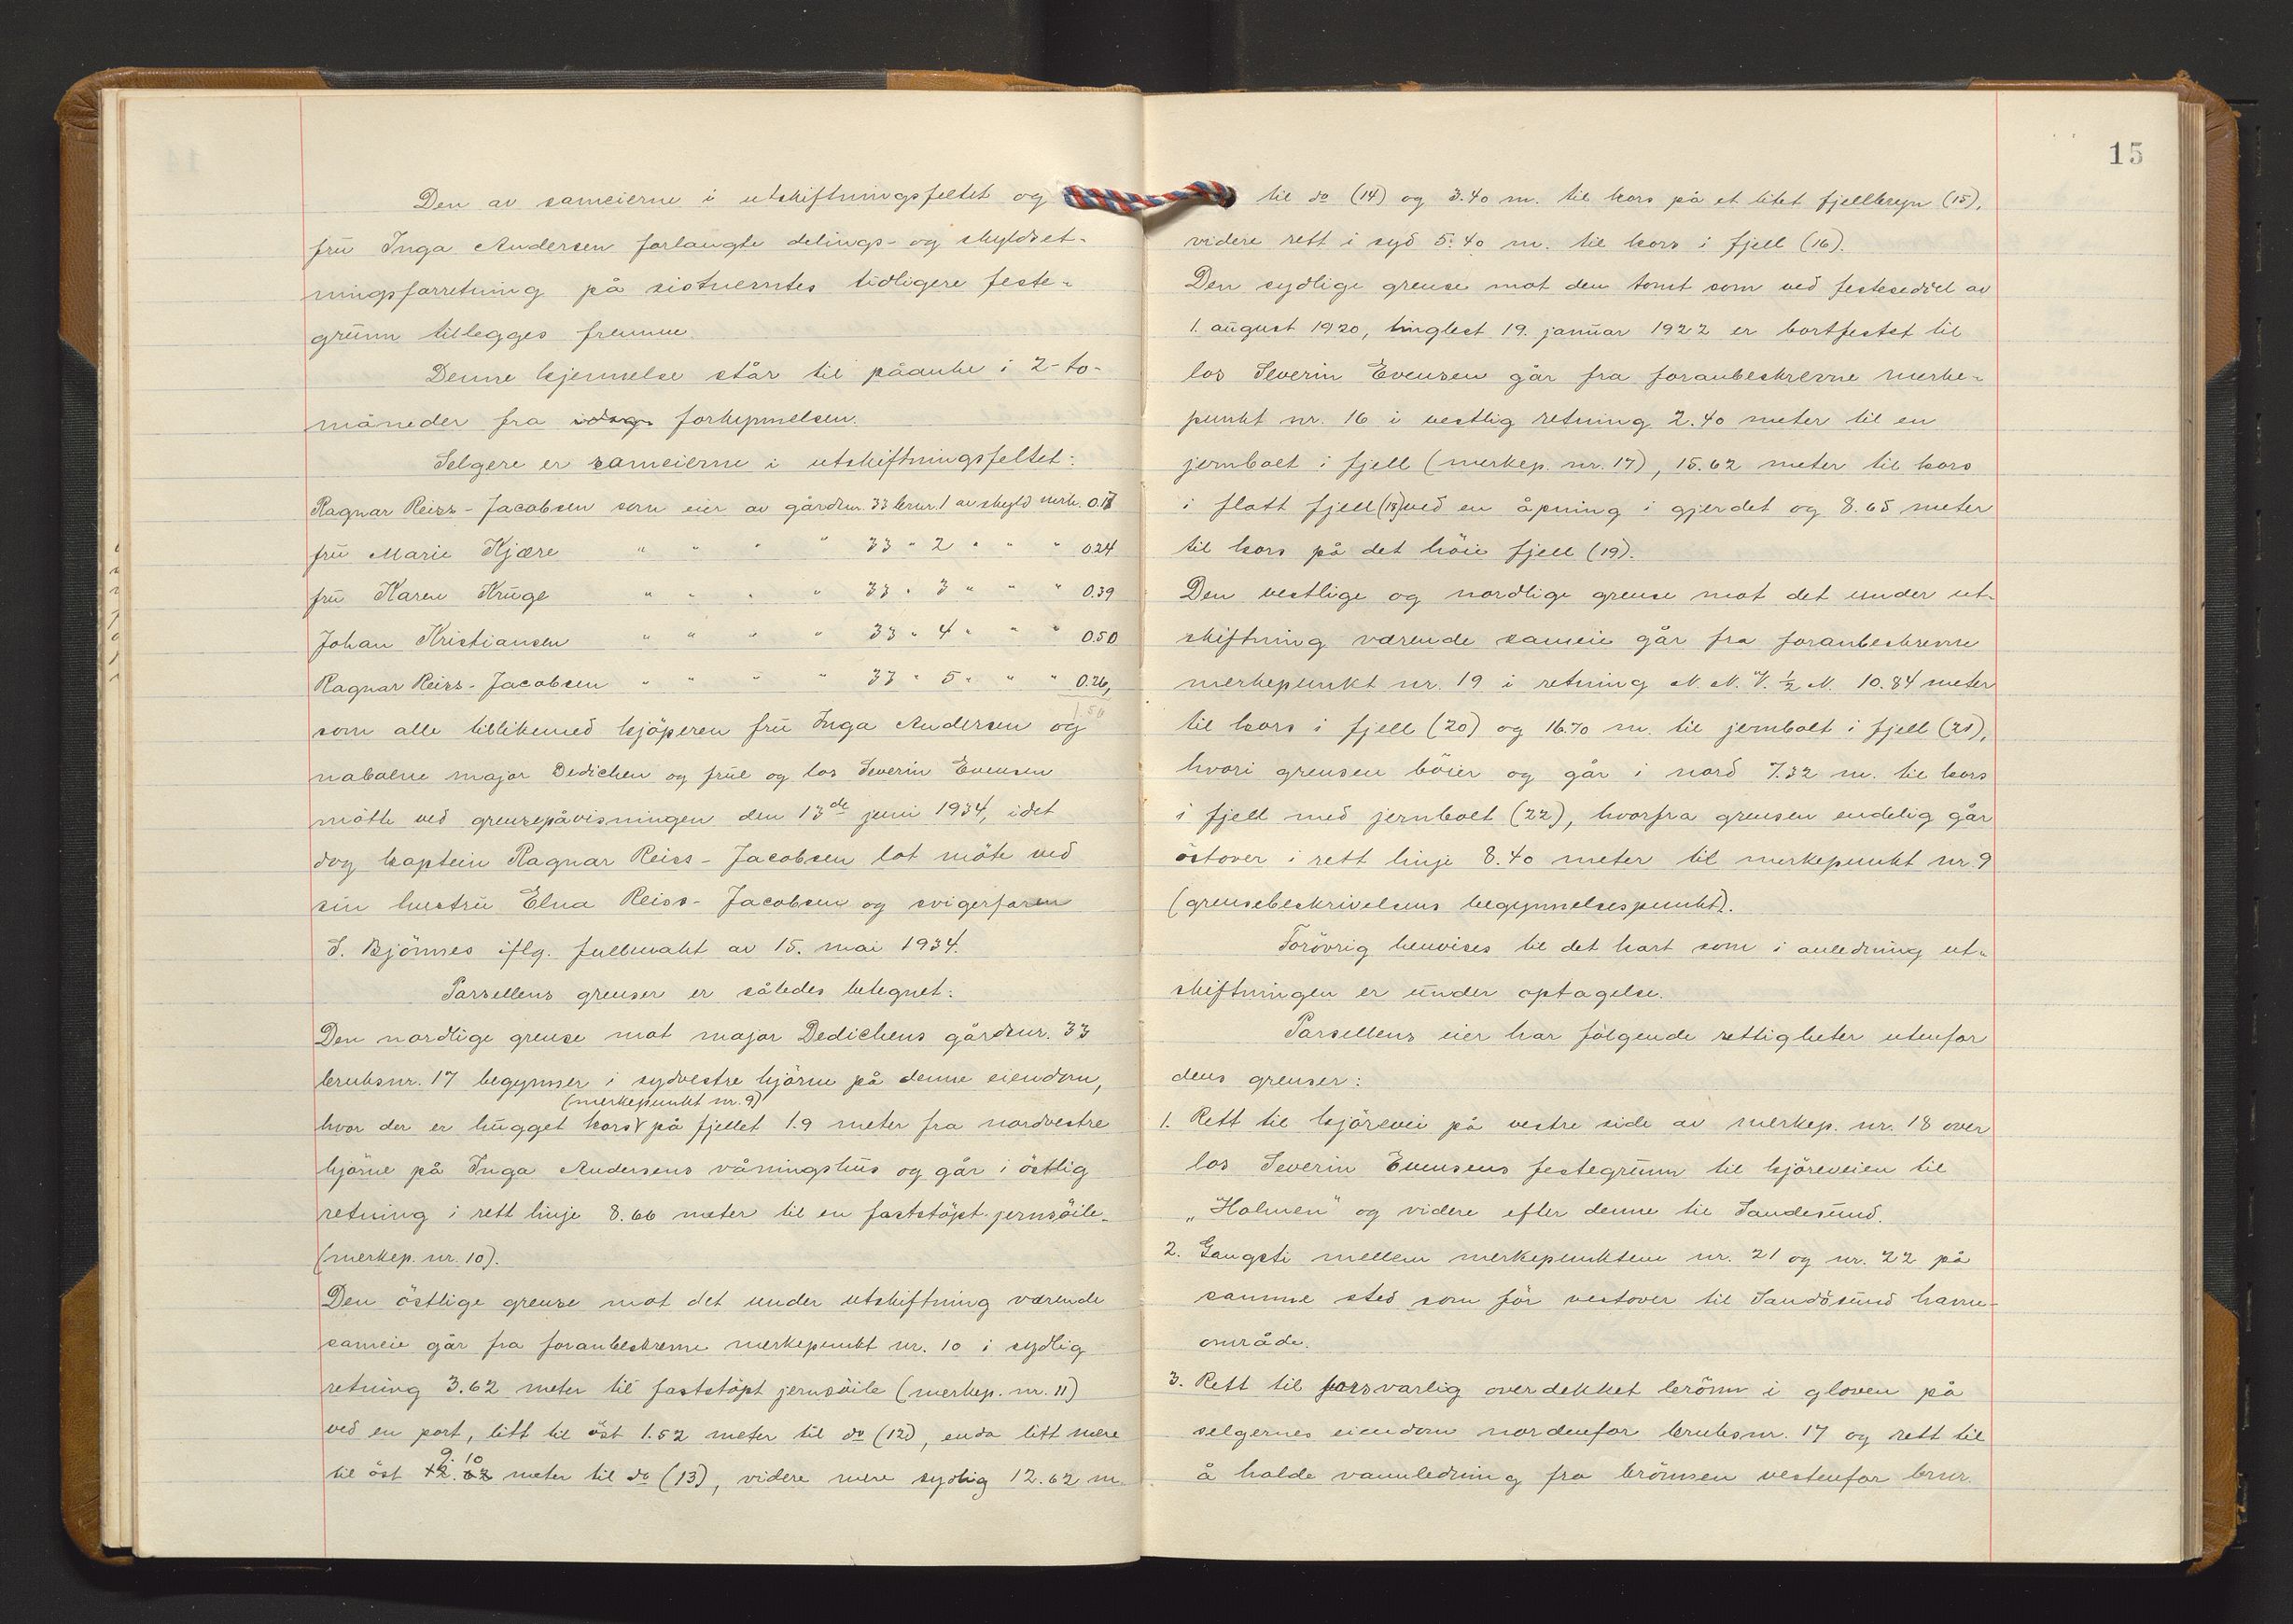 Den av sameierne i utskiftningsfeltet og
frū Inga Andersen forlangte delings- og skyldset-
ningsforretning på sistnevntes tidligere feste-
grūnn tillegges fremme.
Denne kjennelse står til påanke i 2-to-
måneder fra idag forkynnelsen.
Selgere er sameierne i utskiftningsfeltet:
Ragnar Reiss-Jacobsen som eier av gårdsnr. 33 brnr. 1 av skyld merk. 0.17
frū Marie Kjære " " " " 33 " 2 " " " 0.24
frū Karen Krūge " " " " 33 " 3 " " " 0.39
Johan Kristiansen " " " " 33 " 4 " " " 0.50
Ragnar Reiss-Jacobsen " " " " 33 " 5 " " " 0.26,
1.50
som alle tillikemed kjöperen frū Inga Andersen og
naboene major Dedichen og frūe og los Severin Evensen
mötte ved grensepåvisningen den 13de juni 1934, idet
dog kaptein Ragnar Reiss-Jacobsen lot möte ved
sin hustrū Elna Reiss-Jacobsen og svigerfaren
S. Björnnes iflg. fullmakt av 15. mai 1934.
Parsellens grenser er således betegnet:
Den nordlige grense mot major Dedichens gårdsnr. 33
bruksnr. 17 begynner i sydvestre hjörne på denne eiendom,
(merkepunkt nr. 9)
hvor der er hūgget kors på fjellet 1.9 meter fra nordvestre
hjörne på Inga Andersens våningshūs og går i östlig
retning i rett linje 8.66 meter til en faststöpt jernsöile
(merkep. nr. 10).
Den östlige grense mot det under utskiftning værende
sameie går fra foranbeskrevne merkepunkt nr. 10 i sydlig
retning 3.62 meter til faststöpt jernsöile (merkep. nr. 11)
ved en port, litt til öst 1.52 meter til do (12), enda litt mere
9. 10
til öst 12.62 meter til do (13), videre mere sydlig 12.62 m.
15
til do (14) og 3.40 m. til kors på et litet fjellbryn (15),
videre rett i syd 5.40 m. til kors i fjell (16).
Den sydlige grense mot den tomt som ved festeseddel av
1. aūgust 1920, tinglest 19. janūar 1922 er bortfestet til
los Severin Evensen går fra foranbeskrevne merke-
punkt nr. 16 i vestlig retning 2.40 meter til en
jernbolt i fjell (merkep. nr. 17), 15.62 meter til kors
i flatt fjell (18) ved en åpning i gjerdet og 8.65 meter
til kors på det höie fjell (19).
Den vestlige og nordlige grense mot det under ut-
skiftning værende sameie går fra foranbeskrevne
merkepunkt nr. 19 i retning N. N. V. ½ N. 10.84 meter
til kors i fjell (20) og 16.70 m. til jernbolt i fjell (21),
hvori grensen böier og går i nord 7.32 m. til kors
i fjell med jernbolt (22), hvorfra grensen endelig går
östover i rett linje 8.40 meter til merkepunkt nr. 9
(grensebeskrivelsens begynnelsespunkt).
Forövrig henvises til det kart som i anledning ut-
skiftningen er ūnder optagelse.
Parsellens eier har fölgende rettigheter utenfor
dens grenser:
1. Rett til kjörevei på vestre side av merkep. nr. 18 over
los Severin Evensens festegrūnn til kjöreveien til
„Holmen" og videre efter denne til Sandesūnd.
2. Gangsti mellem merkepunktene nr. 21 og nr. 22 på
samme sted som för vestover til Sandösūnd havne-
område.
3. Rett til forsvarlig overdekket brönn i gloven på
selgernes eiendom nordenfor bruksnr. 17 og rett til
å holde vannledning fra brönnen vestenfor brnr.